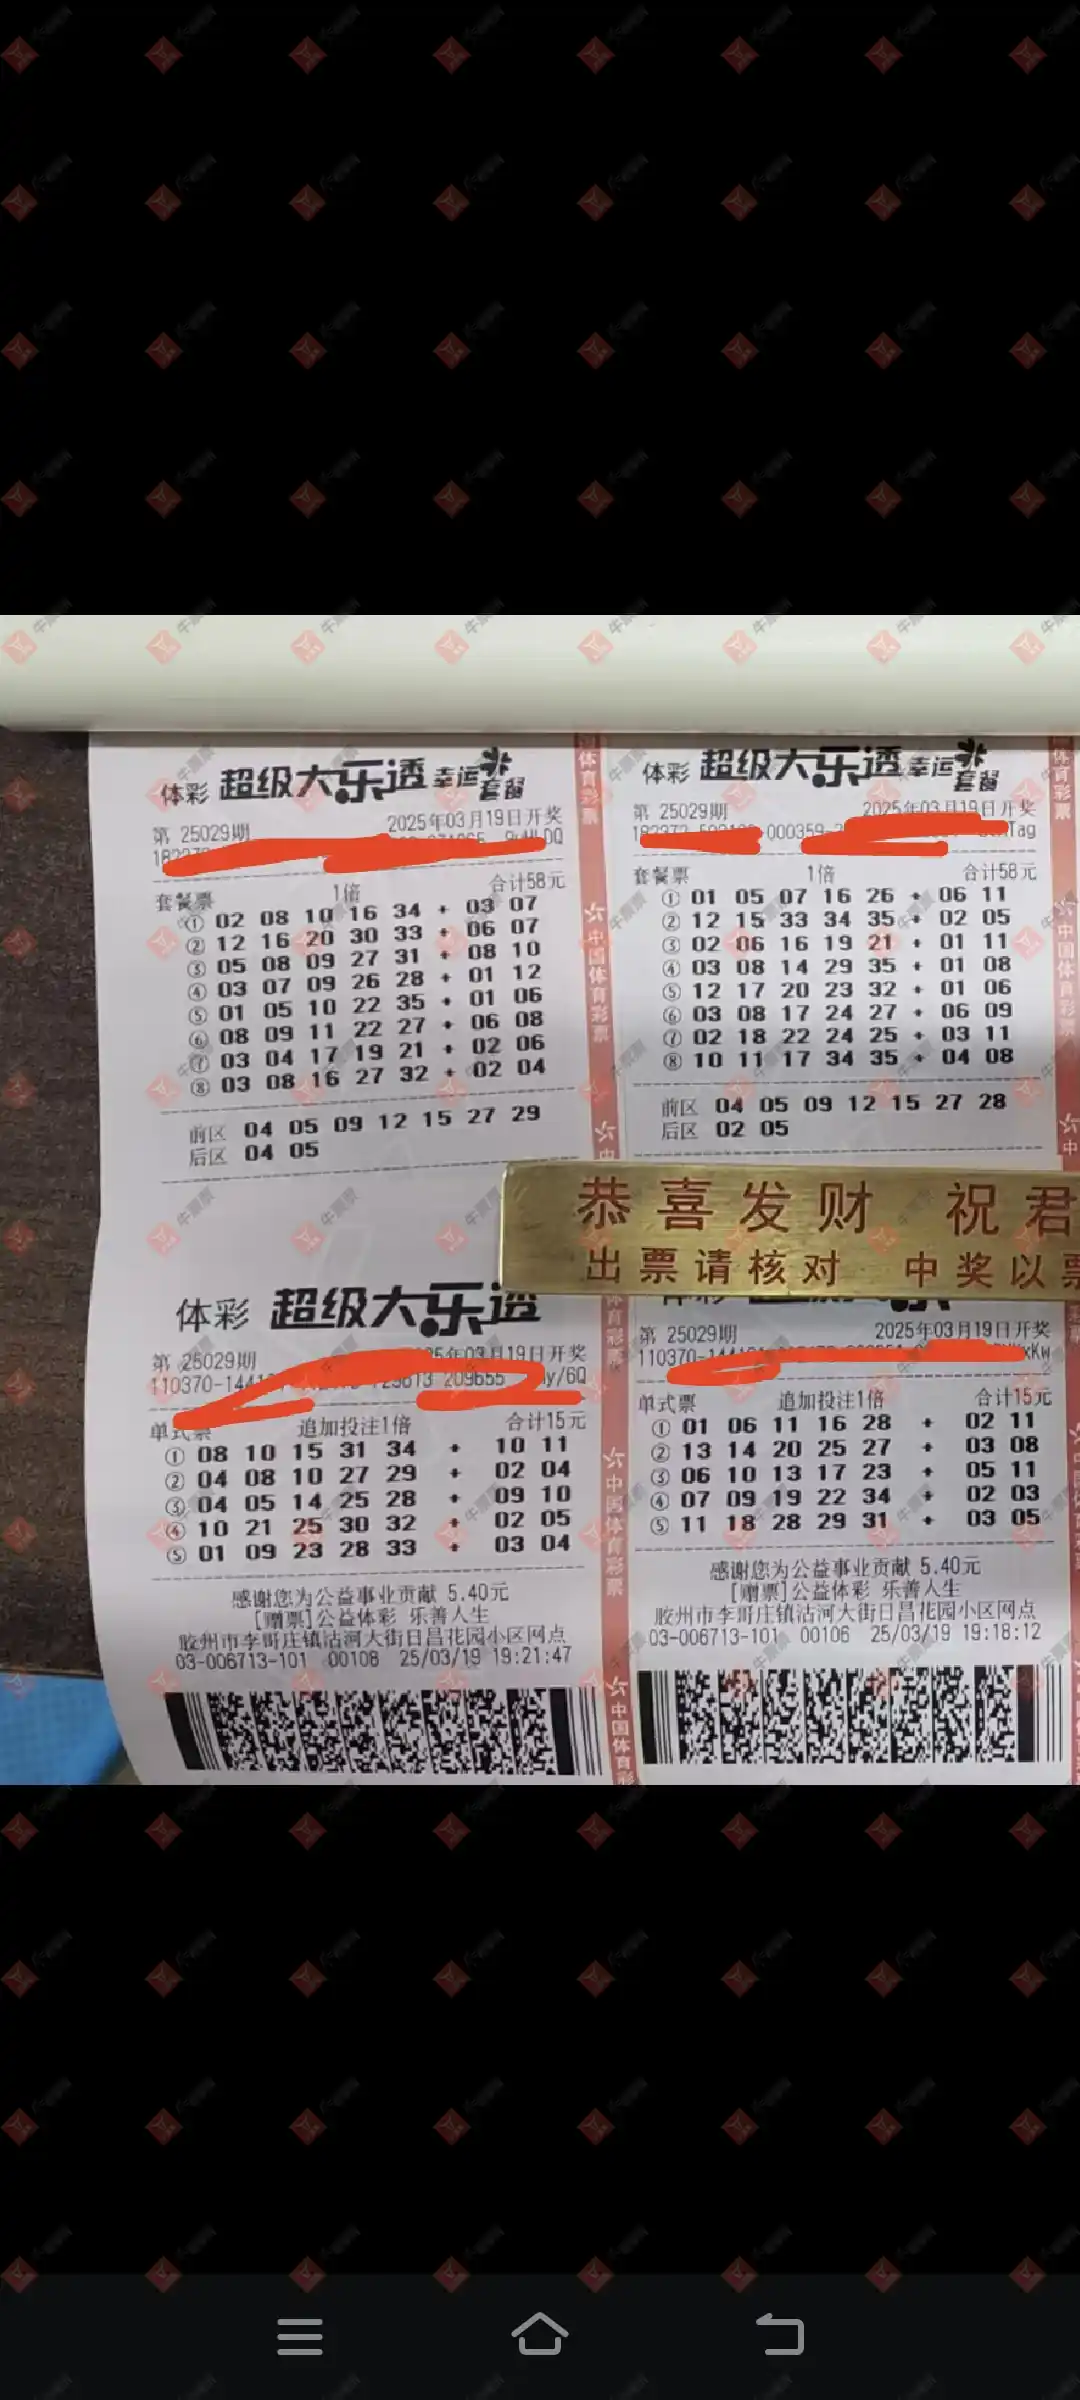 体彩 超级大乐透 幸运套餐
第 25029期 2025年03月19日开奖
套餐票 1倍 合计58元
① 02 08 10 16 34 + 03 07
② 12 16 20 30 33 + 06 07
③ 05 08 09 27 31 + 08 10
④ 03 07 09 26 28 + 01 12
⑤ 01 05 10 22 35 + 01 06
⑥ 08 09 11 22 27 + 06 08
⑦ 03 04 17 19 21 + 02 06
⑧ 03 08 16 27 32 + 02 04
前区 04 05 09 12 15 27 29
后区 04 05
体彩 超级大乐透 幸运套餐
第 25029期 2025年03月19日开奖
000359
套餐票 1倍 合计58元
① 01 05 07 16 26 + 06 11
② 12 15 33 34 35 + 02 05
③ 02 06 16 19 21 + 01 11
④ 03 08 14 29 35 + 01 08
⑤ 12 17 20 23 32 + 01 06
⑥ 03 08 17 24 27 + 06 09
⑦ 02 18 22 24 25 + 03 11
⑧ 10 11 17 34 35 + 04 08
前区 04 05 09 12 15 27 28
后区 02 05
恭喜发财 祝君
出票请核对 中奖以票
体彩 超级大乐透
第 25029期 25年03月19日开奖
110370-1441 209655 y/6Q
单式票 追加投注1倍 合计15元
① 08 10 15 31 34 + 10 11
② 04 08 10 27 29 + 02 04
③ 04 05 14 25 28 + 09 10
④ 10 21 25 30 32 + 02 05
⑤ 01 09 23 28 33 + 03 04
感谢您为公益事业贡献 5.40元
[赠票]公益体彩 乐善人生
胶州市李哥庄镇沽河大街日昌花园小区网点
03-006713-101 00108 25/03/19 19:21:47
第 25029期 2025年03月19日开奖
110370-144 xKw
单式票 追加投注1倍 合计15元
① 01 06 11 16 28 + 02 11
② 13 14 20 25 27 + 03 08
③ 06 10 13 17 23 + 05 11
④ 07 09 19 22 34 + 02 03
⑤ 11 18 28 29 31 + 03 05
感谢您为公益事业贡献 5.40元
[赠票]公益体彩 乐善人生
胶州市李哥庄镇沽河大街日昌花园小区网点
03-006713-101 00106 25/03/19 19:18:12
中国体育彩票
中国体育彩票
牛票票